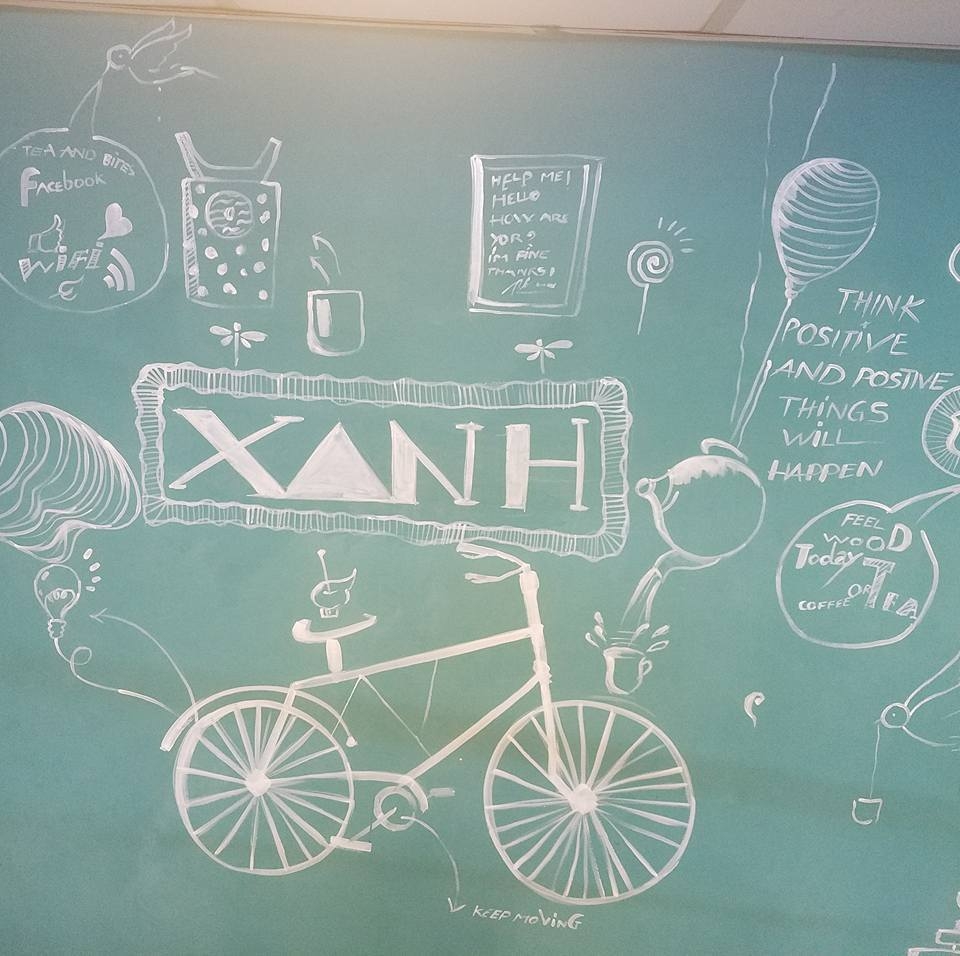 TEA AND BITES
FACEBOOK
WIFI
HELP ME!
HELLO
HOW ARE
YOR?
I'M FINE
THANKS!
THINK
POSITIVE
AND POSTIVE
THINGS
WILL
HAPPEN
XANH
FEEL
WOOD
Today
OR TEA
COFFEE
KEEP MOVING